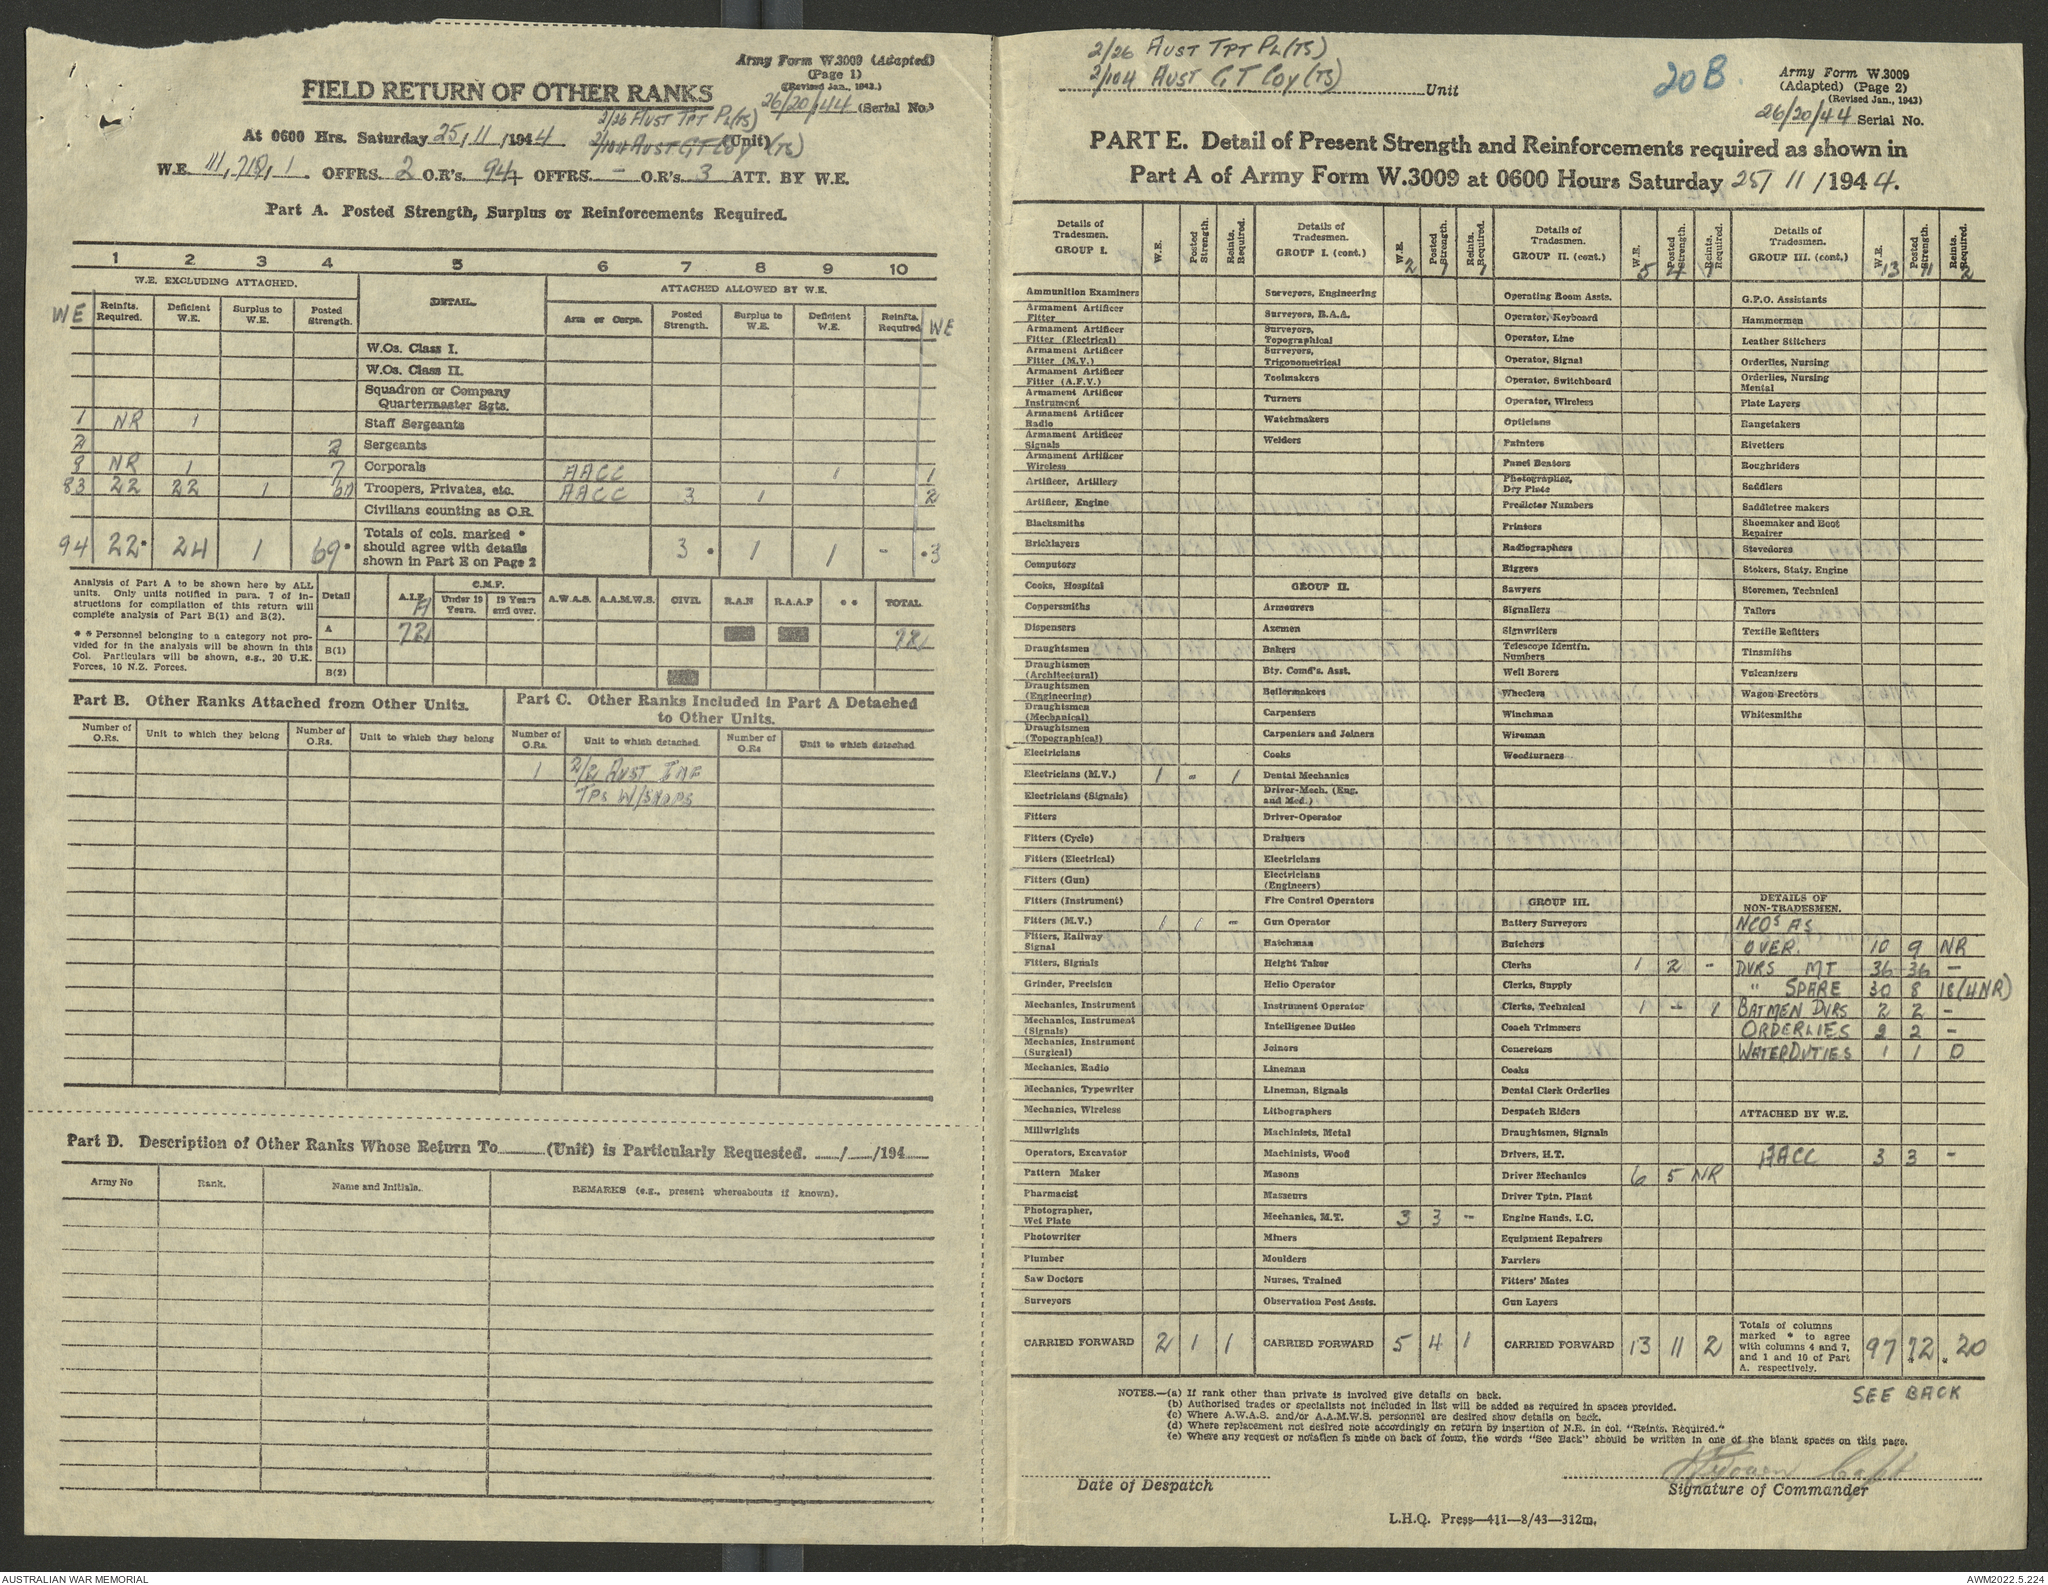 Army Form W.3009 (Adapted)
(Page 1)
(Revised Jan., 1943.)
FIELD RETURN OF OTHER RANKS
26/20/44 (Serial No.)
2/26 AUST TPT PL(TS)
At 0600 Hrs. Saturday 25/11/1944. 2/104 AUST GT COY (TS) (Unit)
W.E. 111/718/1. OFFRS. 2 O.R's. 94 OFFRS. - O.R's. 3 ATT. BY W.E.
Part A. Posted Strength, Surplus or Reinforcements Required.
1 2 3 4 5 6 7 8 9 10
W.E. EXCLUDING ATTACHED. DETAIL. ATTACHED ALLOWED BY W.E.
WE Reinfts. Required. Deficient W.E. Surplus to W.E. Posted Strength. Arm or Corps. Posted Strength. Surplus to W.E. Deficient W.E. Reinfts. Required WE
W.Os. Class I.
W.Os. Class II.
Squadron or Company
Quartermaster Sgts.
1 NR 1 Staff Sergeants
2 2 Sergeants
8 NR 1 7 Corporals AACC 1 1
83 22 22 1 60 Troopers, Privates, etc. AACC 3 1 2
Civilians counting as O.R.
94 22* 24 1 69* Totals of cols. marked * should agree with details shown in Part E on Page 2 3* 1 1 - *3
Analysis of Part A to be shown here by ALL units. Only units notified in para. 7 of instructions for compilation of this return will complete analysis of Part B(1) and B(2).
* * Personnel belonging to a category not provided for in the analysis will be shown in this Col. Particulars will be shown, e.g., 20 U.K. Forces, 10 N.Z. Forces.
Detail A.I.F. C.M.F. Under 19 Years. 19 Years and over. A.W.A.S. A.A.M.W.S. CIVIL R.A.N R.A.A.F * * TOTAL
A 72 72
B(1)
B(2)
Part B. Other Ranks Attached from Other Units.
Number of O.Rs. Unit to which they belong Number of O.Rs. Unit to which they belong
Part C. Other Ranks Included in Part A Detached
to Other Units.
Number of O.Rs. Unit to which detached. Number of O.Rs Unit to which detached
1 2/2 AUST
TPS W/SHOPS
Part D. Description of Other Ranks Whose Return To (Unit) is Particularly Requested. / /194
Army No Rank. Name and Initials. REMARKS (e.g., present whereabouts if known).
2/26 AUST TPT PL(TS)
2/104 AUST GT COY (TS) Unit
20B.
Army Form W.3009
(Adapted) (Page 2)
(Revised Jan., 1943)
26/20/44 Serial No.
PART E. Detail of Present Strength and Reinforcements required as shown in
Part A of Army Form W.3009 at 0600 Hours Saturday 25/11/1944.
Details of Tradesmen. GROUP I. W.E. Posted Strength. Reints. Required.
Ammunition Examiners
Armament Artificer Fitter
Armament Artificer Fitter (Electrical)
Armament Artificer Fitter (M.V.)
Armament Artificer Fitter (A.F.V.)
Armament Artificer Instrument
Armament Artificer Radio
Armament Artificer Signals
Armament Artificer Wireless
Artificer, Artillery
Artificer, Engine
Blacksmiths
Bricklayers
Computors
Cooks, Hospital
Coppersmiths
Dispensers
Draughtsmen
Draughtsmen (Architectural)
Draughtsmen (Engineering)
Draughtsmen (Mechanical)
Draughtsmen (Topographical)
Electricians
Electricians (M.V.) 1 - 1
Electricians (Signals)
Fitters
Fitters (Cycle)
Fitters (Electrical)
Fitters (Gun)
Fitters (Instrument)
Fitters (M.V.) 1 1 -
Fitters, Railway Signal
Fitters, Signals
Grinder, Precision
Mechanics, Instrument
Mechanics, Instrument (Signals)
Mechanics, Instrument (Surgical)
Mechanics, Radio
Mechanics, Typewriter
Mechanics, Wireless
Millwrights
Operators, Excavator
Pattern Maker
Pharmacist
Photographer, Wet Plate
Photowriter
Plumber
Saw Doctors
Surveyors
CARRIED FORWARD 2 1 1
Details of Tradesmen. GROUP I. (cont.) W.E. 2 Posted Strength. 1 Reints. Required. 1
Surveyors, Engineering
Surveyors, R.A.A.
Surveyors, Topographical
Surveyors, Trigonometrical
Toolmakers
Turners
Watchmakers
Welders
GROUP II.
Armourers
Axemen
Bakers
Bty. Comd's. Asst.
Boilermakers
Carpenters
Carpenters and Joiners
Cooks
Dental Mechanics
Driver-Mech. (Eng. and Med.)
Driver-Operator
Drainers
Electricians
Electricians (Engineers)
Fire Control Operators
Gun Operator
Hatchman
Height Taker
Helio Operator
Instrument Operator
Intelligence Duties
Joiners
Lineman
Lineman, Signals
Lithographers
Machinists, Metal
Machinists, Wood
Masons
Masseurs
Mechanics, M.T. 3 3 -
Miners
Moulders
Nurses, Trained
Observation Post Assts.
CARRIED FORWARD 5 4 1
Details of Tradesmen. GROUP II. (cont.) W.E. 5 Posted Strength. 4 Reints. Required. 1
Operating Room Assts.
Operator, Keyboard
Operator, Line
Operator, Signal
Operator, Switchboard
Operator, Wireless
Opticians
Painters
Panel Beaters
Photographer, Dry Plate
Predictor Numbers
Printers
Radiographers
Riggers
Sawyers
Signallers
Signwriters
Telescope Identfn. Numbers
Well Borers
Wheelers
Winchman
Wireman
Woodturners
GROUP III.
Battery Surveyors
Butchers
Clerks 1 2 -
Clerks, Supply
Clerks, Technical 1 - 1
Coach Trimmers
Concretors
Cooks
Dental Clerk Orderlies
Despatch Riders
Draughtsmen, Signals
Drivers, H.T.
Driver Mechanics 6 5 NR
Driver Tptn. Plant
Engine Hands, I.C.
Equipment Repairers
Farriers
Fitters' Mates
Gun Layers
CARRIED FORWARD 13 11 2
Details of Tradesmen. GROUP III. (cont.) W.E. 13 Posted Strength. 11 Reints. Required. 2
G.P.O. Assistants
Hammermen
Leather Stitchers
Orderlies, Nursing
Orderlies, Nursing Mental
Plate Layers
Rangetakers
Rivetters
Roughriders
Saddlers
Saddletree makers
Shoemaker and Boot Repairer
Stevedores
Stokers, Staty. Engine
Storemen, Technical
Tailors
Textile Refitters
Tinsmiths
Vulcanizers
Wagon Erectors
Whitesmiths
DETAILS OF NON-TRADESMEN.
NCOs AS
OVER. 10 9 NR
DVRS MT 36 36 -
" SPARE 30 8 18(4NR)
BATMEN DVRS 2 2 -
ORDERLIES 2 2 -
WATER DUTIES 1 1 0
ATTACHED BY W.E.
AACC 3 3 -
Totals of columns marked * to agree with columns 4 and 7, and 1 and 10 of Part A. respectively. 97 72* *20
SEE BACK
NOTES.—(a) If rank other than private is involved give details on back.
(b) Authorised trades or specialists not included in list will be added as required in spaces provided.
(c) Where A.W.A.S. and/or A.A.M.W.S. personnel are desired show details on back.
(d) Where replacement not desired note accordingly on return by insertion of N.R. in col. "Reints. Required."
(e) Where any request or notation is made on back of form, the words "See Back" should be written in one of the blank spaces on this page.
Capt
Date of Despatch
Signature of Commander
L.H.Q. Press—411—8/43—312m.
AUSTRALIAN WAR MEMORIAL
AWM2022.5.224